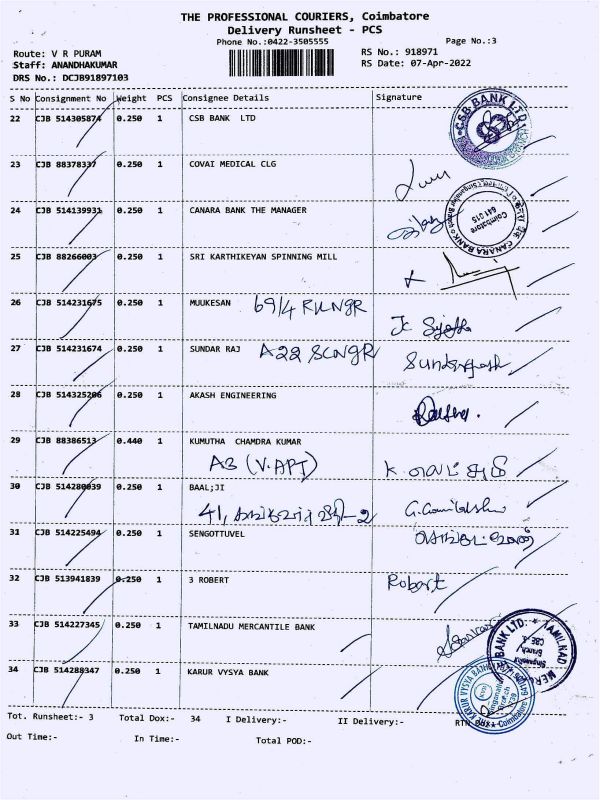 THE PROFESSIONAL COURIERS, Coimbatore
Delivery Runsheet - PCS
Phone No.:0422-3505555
Page No.:3
Route: V R PURAM
RS No.: 918971
Staff: ANANDHAKUMAR
RS Date: 07-Apr-2022
DRS No.: DCJB91897103
S No Consignment No Weight PCS Consignee Details Signature
22 CJB 514305874 0.250 1 CSB BANK LTD
CSB BANK LTD
23 CJB 88378337 0.250 1 COVAI MEDICAL CLG
24 CJB 514139931 0.250 1 CANARA BANK THE MANAGER
CANARA BANK Coimbatore 641 015
25 CJB 88266003 0.250 1 SRI KARTHIKEYAN SPINNING MILL
26 CJB 514231675 0.250 1 MUUKESAN 69/4 RKNGR
27 CJB 514231674 0.250 1 SUNDAR RAJ A22 SCNGR
28 CJB 514325206 0.250 1 AKASH ENGINEERING
29 CJB 88386513 0.440 1 KUMUTHA CHAMDRA KUMAR
A3 (V.APT) K
30 CJB 514280039 0.250 1 BAAL;JI
41, 2
31 CJB 514225494 0.250 1 SENGOTTUVEL
32 CJB 513941839 0.250 1 3 ROBERT Robert
33 CJB 514227345 0.250 1 TAMILNADU MERCANTILE BANK
TAMILNAD MERCANTILE BANK LTD. Singanallur Branch CBE
34 CJB 514288347 0.250 1 KARUR VYSYA BANK
KARUR VYSYA BANK Singanallur Branch Coimbatore
Tot. Runsheet:- 3 Total Dox:- 34 I Delivery:- II Delivery:- RTN
Out Time:- In Time:- Total POD:-